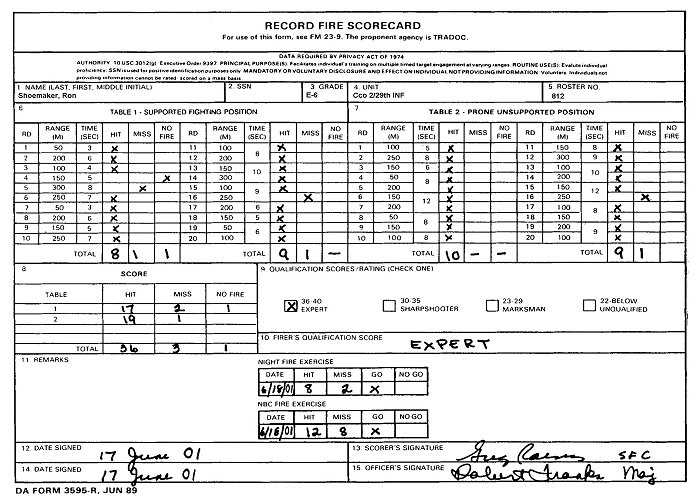 RECORD FIRE SCORECARD
For use of this form, see FM 23-9. The proponent agency is TRADOC.
DATA REQUIRED BY PRIVACY ACT OF 1974
AUTHORITY 10 USC 3012(g) Executive Order 9397. PRINCIPAL PURPOSE(S). Facilitates individual's training on multiple timed target engagement at varying ranges. ROUTINE USE(S). Evaluate individual
proficiency. SSN is used for positive identification purposes only. MANDATORY OR VOLUNTARY DISCLOSURE AND EFFECT ON INDIVIDUAL NOT PROVIDING INFORMATION Voluntary. Individuals not
providing information cannot be rated scored on a mass basis
1 NAME (LAST, FIRST, MIDDLE INITIAL) 2. SSN 3 GRADE 4. UNIT 5. ROSTER NO.
Shoemaker, Ron E-6 Cco 2/29th INF 812
6 TABLE 1 - SUPPORTED FIGHTING POSITION 7 TABLE 2 - PRONE UNSUPPORTED POSITION
RD RANGE (M) TIME (SEC) HIT MISS NO FIRE RD RANGE (M) TIME (SEC) HIT MISS NO FIRE RD RANGE (M) TIME (SEC) HIT MISS NO FIRE RD RANGE (M) TIME (SEC) HIT MISS NO FIRE
1 50 3 X 11 100 8 X 1 100 5 X 11 150 8 X
2 200 6 X 12 200 X 2 250 8 X 12 300 9 X
3 100 4 X 13 100 10 X 3 150 6 X 13 100 10 X
4 150 5 X 14 300 X 4 50 8 X 14 200 X
5 300 8 X 15 100 9 X 5 200 X 15 150 12 X
6 250 7 X 16 250 X 6 150 12 X 16 250 X
7 50 3 X 17 200 6 X 7 200 X 17 100 8 X
8 200 6 X 18 150 5 X 8 50 8 X 18 150 X
9 150 5 X 19 50 6 X 9 150 X 19 200 9 X
10 250 7 X 20 100 X 10 100 8 X 20 100 X
TOTAL 8 1 1 TOTAL 9 1 – TOTAL 10 – – TOTAL 9 1
8 SCORE 9 QUALIFICATION SCORES/RATING (CHECK ONE)
TABLE HIT MISS NO FIRE
X 36-40 EXPERT 30-35 SHARPSHOOTER 23-29 MARKSMAN 22-BELOW UNQUALIFIED
1 17 2 1
2 19 1
TOTAL 36 3 1
10 FIRER'S QUALIFICATION SCORE EXPERT
11 REMARKS
NIGHT FIRE EXERCISE
DATE HIT MISS GO NO GO
6/18/01 8 2 X
NBC FIRE EXERCISE
DATE HIT MISS GO NO GO
6/16/01 12 8 X
12 DATE SIGNED 17 June 01 13. SCORER'S SIGNATURE Greg SFC
14 DATE SIGNED 17 June 01 15 OFFICER'S SIGNATURE Robert Franks Maj
DA FORM 3595-R, JUN 89